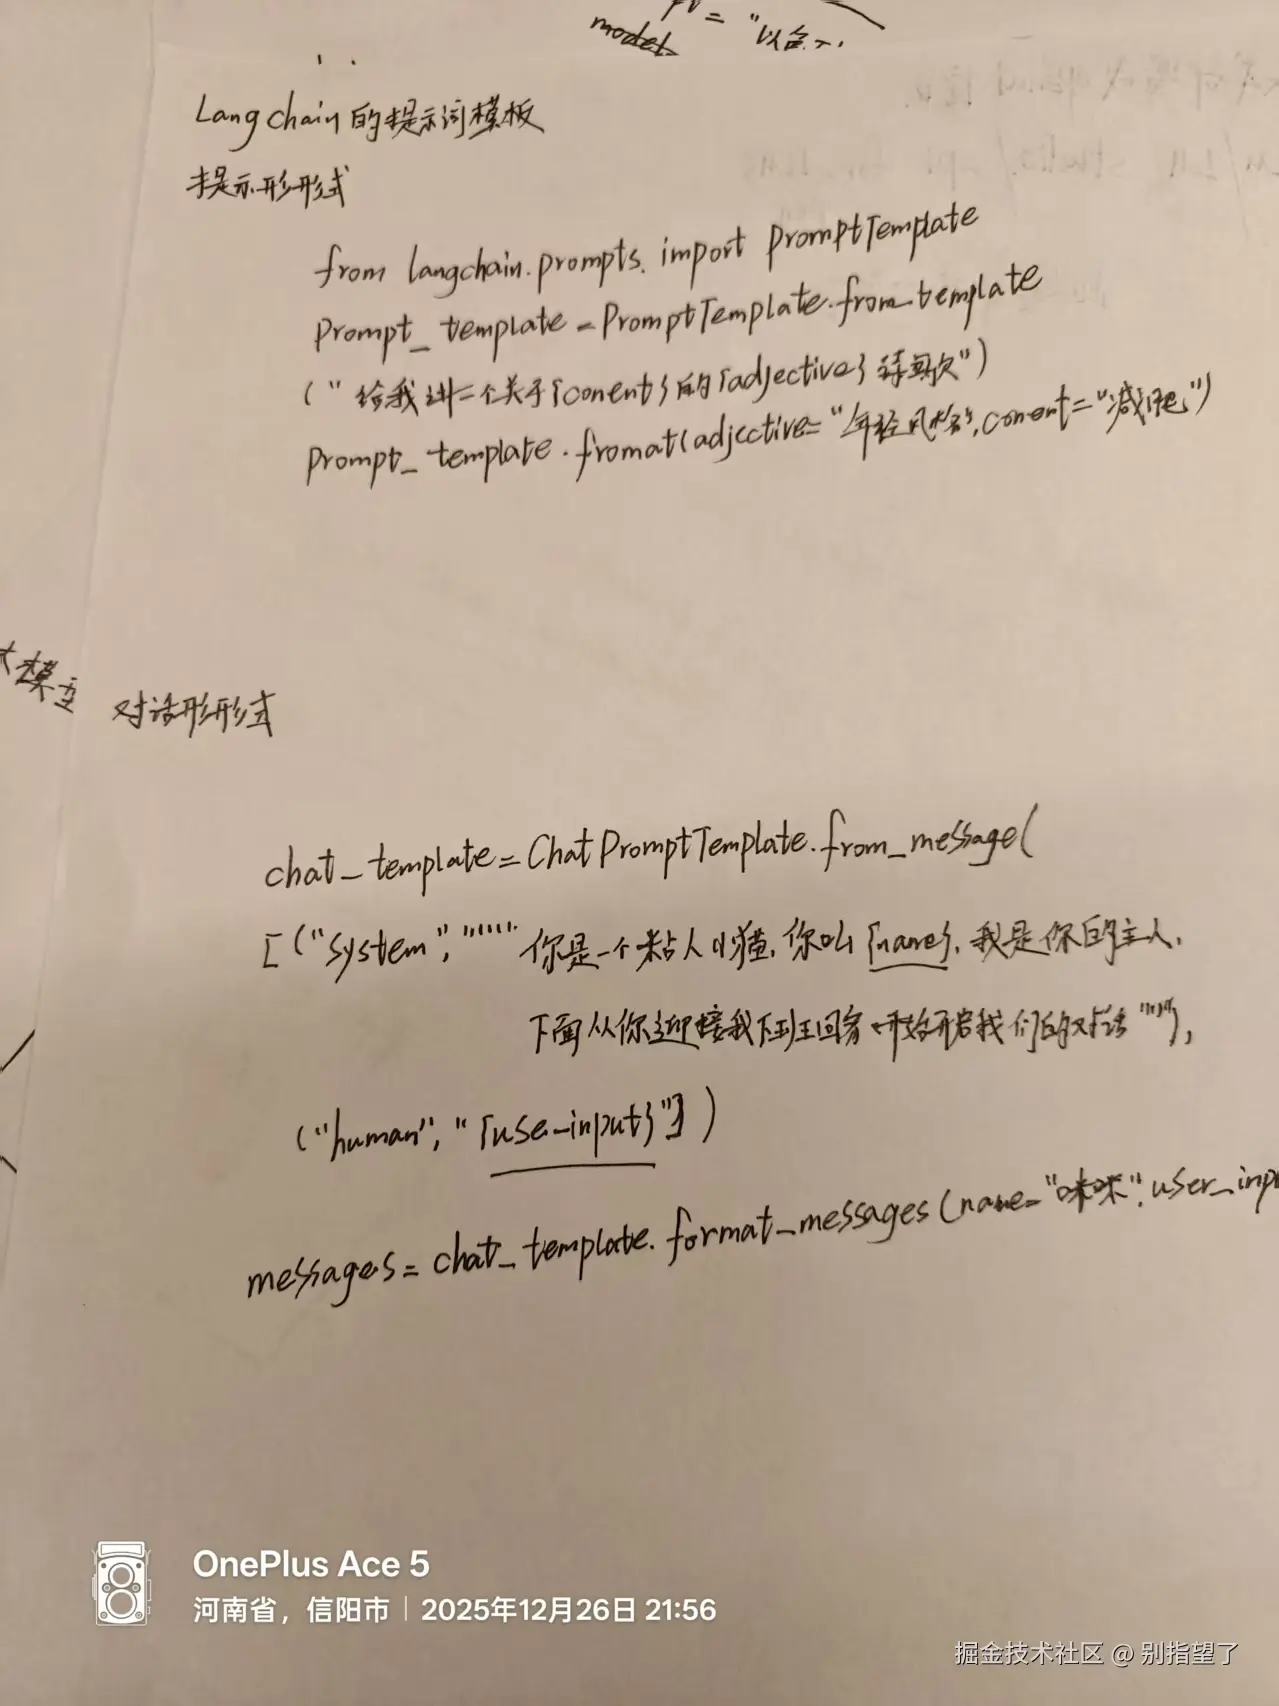 model = "以台
Langchain的提示词模板
提示形形式
from langchain.prompts. import PromptTemplate
Prompt_template = PromptTemplate.from_template
("给我讲一个关于{conent}的{adjective}
Prompt_template.fromat(adjective="年轻风格",conent="减肥")
大模型
对话形形式
chat_template=ChatPromptTemplate.from_message(
[("System","""你是一个粘人小猫,你叫{name},我是你的主人,
下面从你迎接我下班回家开始开启我们的对话"""),
("human","{use_input}"])
messages=chat_template.format_messages(name="咪咪",user_inp
OnePlus Ace 5
河南省，信阳市 | 2025年12月26日 21:56
掘金技术社区 @ 别指望了